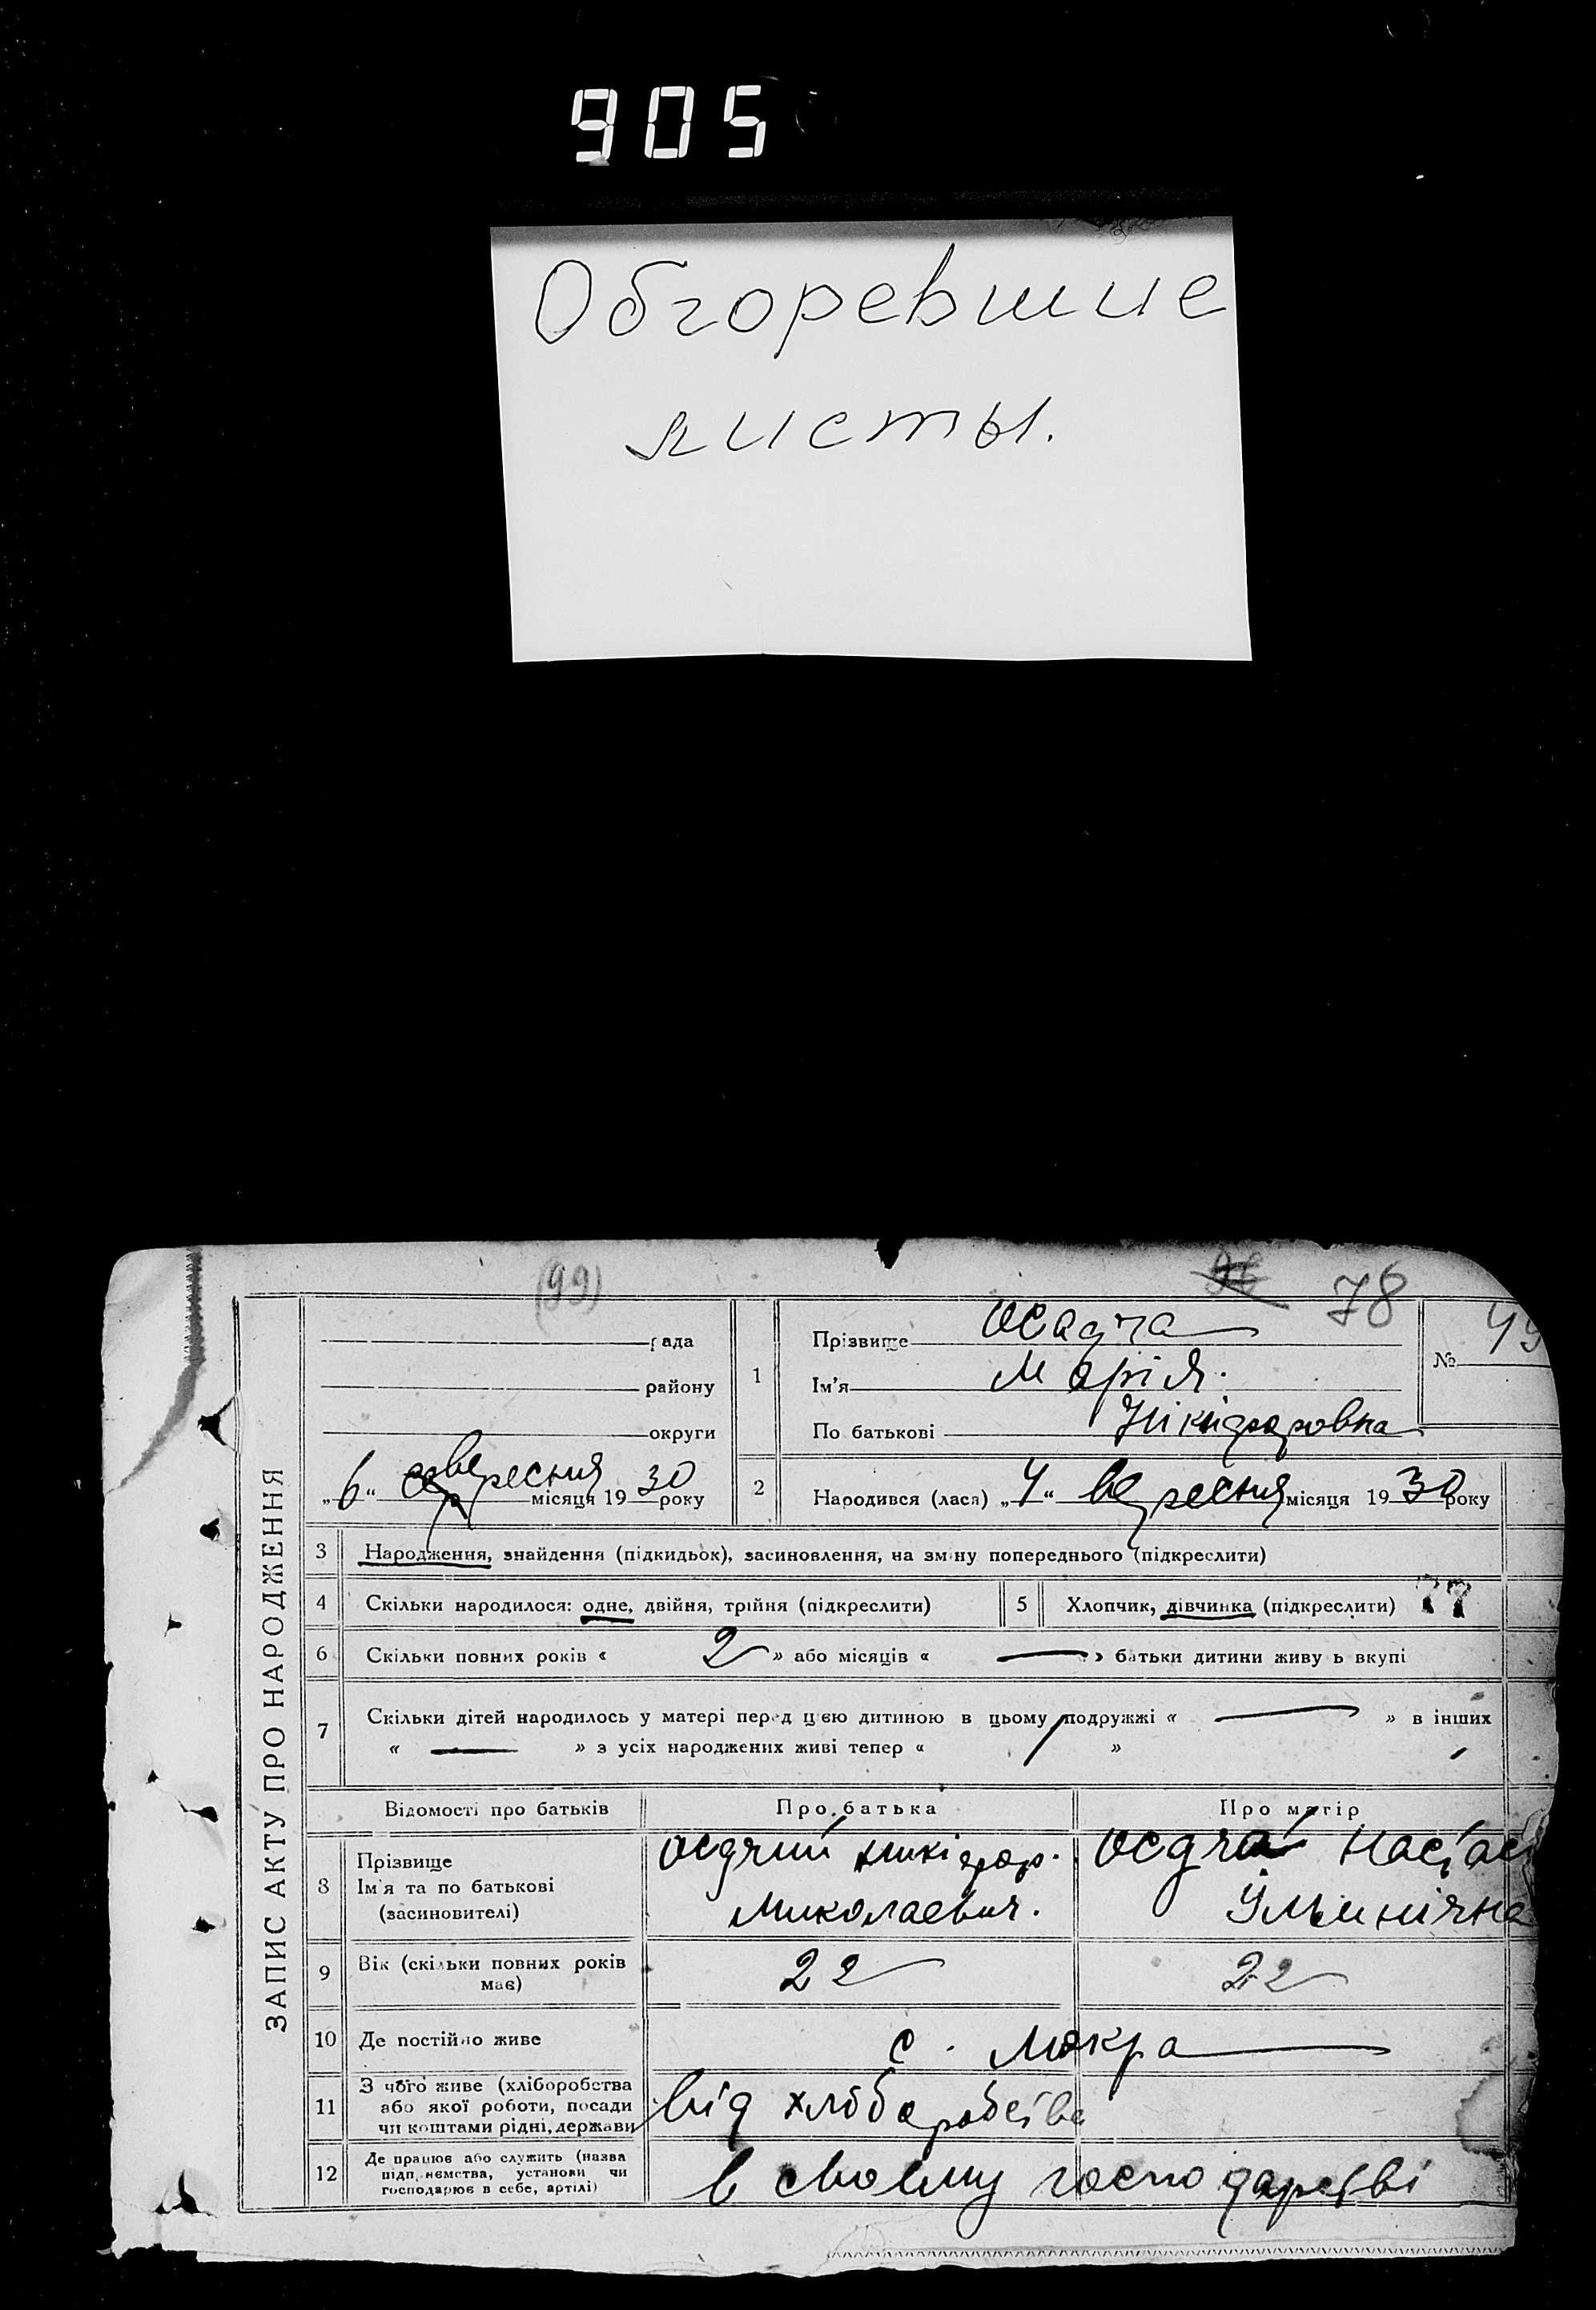 905
Обгоревшие
листы.
(99)
78
ЗАПИС АКТУ ПРО НАРОДЖЕННЯ
рада
району
округи
„6“ вересня місяця 1930 року
1
Прізвище Осадча
Ім’я Марія.
По батькові Нікіфоровна
№ 49
2
Народився (лася) „4“ вересня місяця 1930 року
3 Народження, знайдення (підкидьок), засиновлення, на зміну попереднього (підкреслити)
4 Скільки народилося: одне, двійня, трійня (підкреслити)
5 Хлопчик, дівчинка (підкреслити) 77
6 Скільки повних років « 2 » або місяців « — » батьки дитини живуть вкупі
7 Скільки дітей народилось у матері перед цією дитиною в цьому подружжі « — » в інших
« — » з усіх народжених живі тепер « »
Відомості про батьків
Про батька
Про матір
8
Прізвище
Ім’я та по батькові
(засиновителі)
Осдчий Микіфор.
Миколаевич.
Осдча
9
Вік (скільки повних років
має)
22
22
10 Де постійно живе
с. Мокра
11
З чого живе (хліборобства
або якої роботи, посади
чи коштами рідні, держави
від хліборобства
12
Де працює або служить (назва
підприємства, установи чи
господарює в себе, артілі)
в своєму господарстві